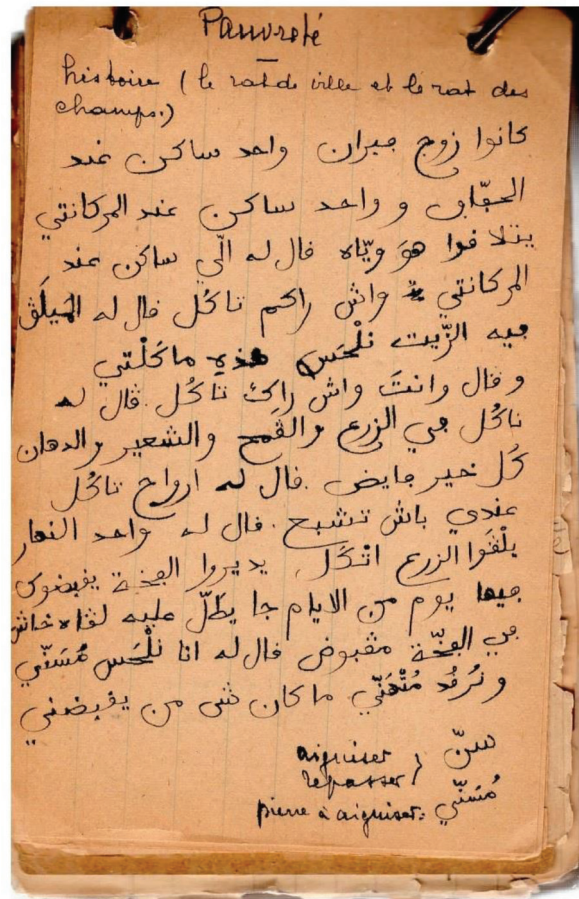 Pauvreté
histoire (le rat de ville et le rat des
champs.)
كانوا زوج جيران واحد ساكن عند
و واحد ساكن عند المركانتي
يتلافوا هوَ ويّاه فال له الّي ساكن عند
المركانتي واش راكم تاكُل فال له
ڢيه الزّيت نلْحَس هذِهِ ماكَلْتي
و فال وانتَ واش راكْ تاكُل فال له
ناكُل ڢي الزرع والڤمح والشعير والدهان
كُل خير ڢايض. فال له ارواح تاكُل
عندي باش تشبع. فال له واحد النهار
يلْقَوا الزرع اتْكَل يديروا الڢخة يفبضوك
ڢيها يوم من الايام جا يطلّ عليه لفاه
ڢي الڢخّة مڤبوض فال له انا نلْحَس مُسَنّي
و نرُفُد مُتْهَنّي ما كان ش من يفبضني
سنّ aiguiser
repasser
مُسَنّي pierre à aiguiser: